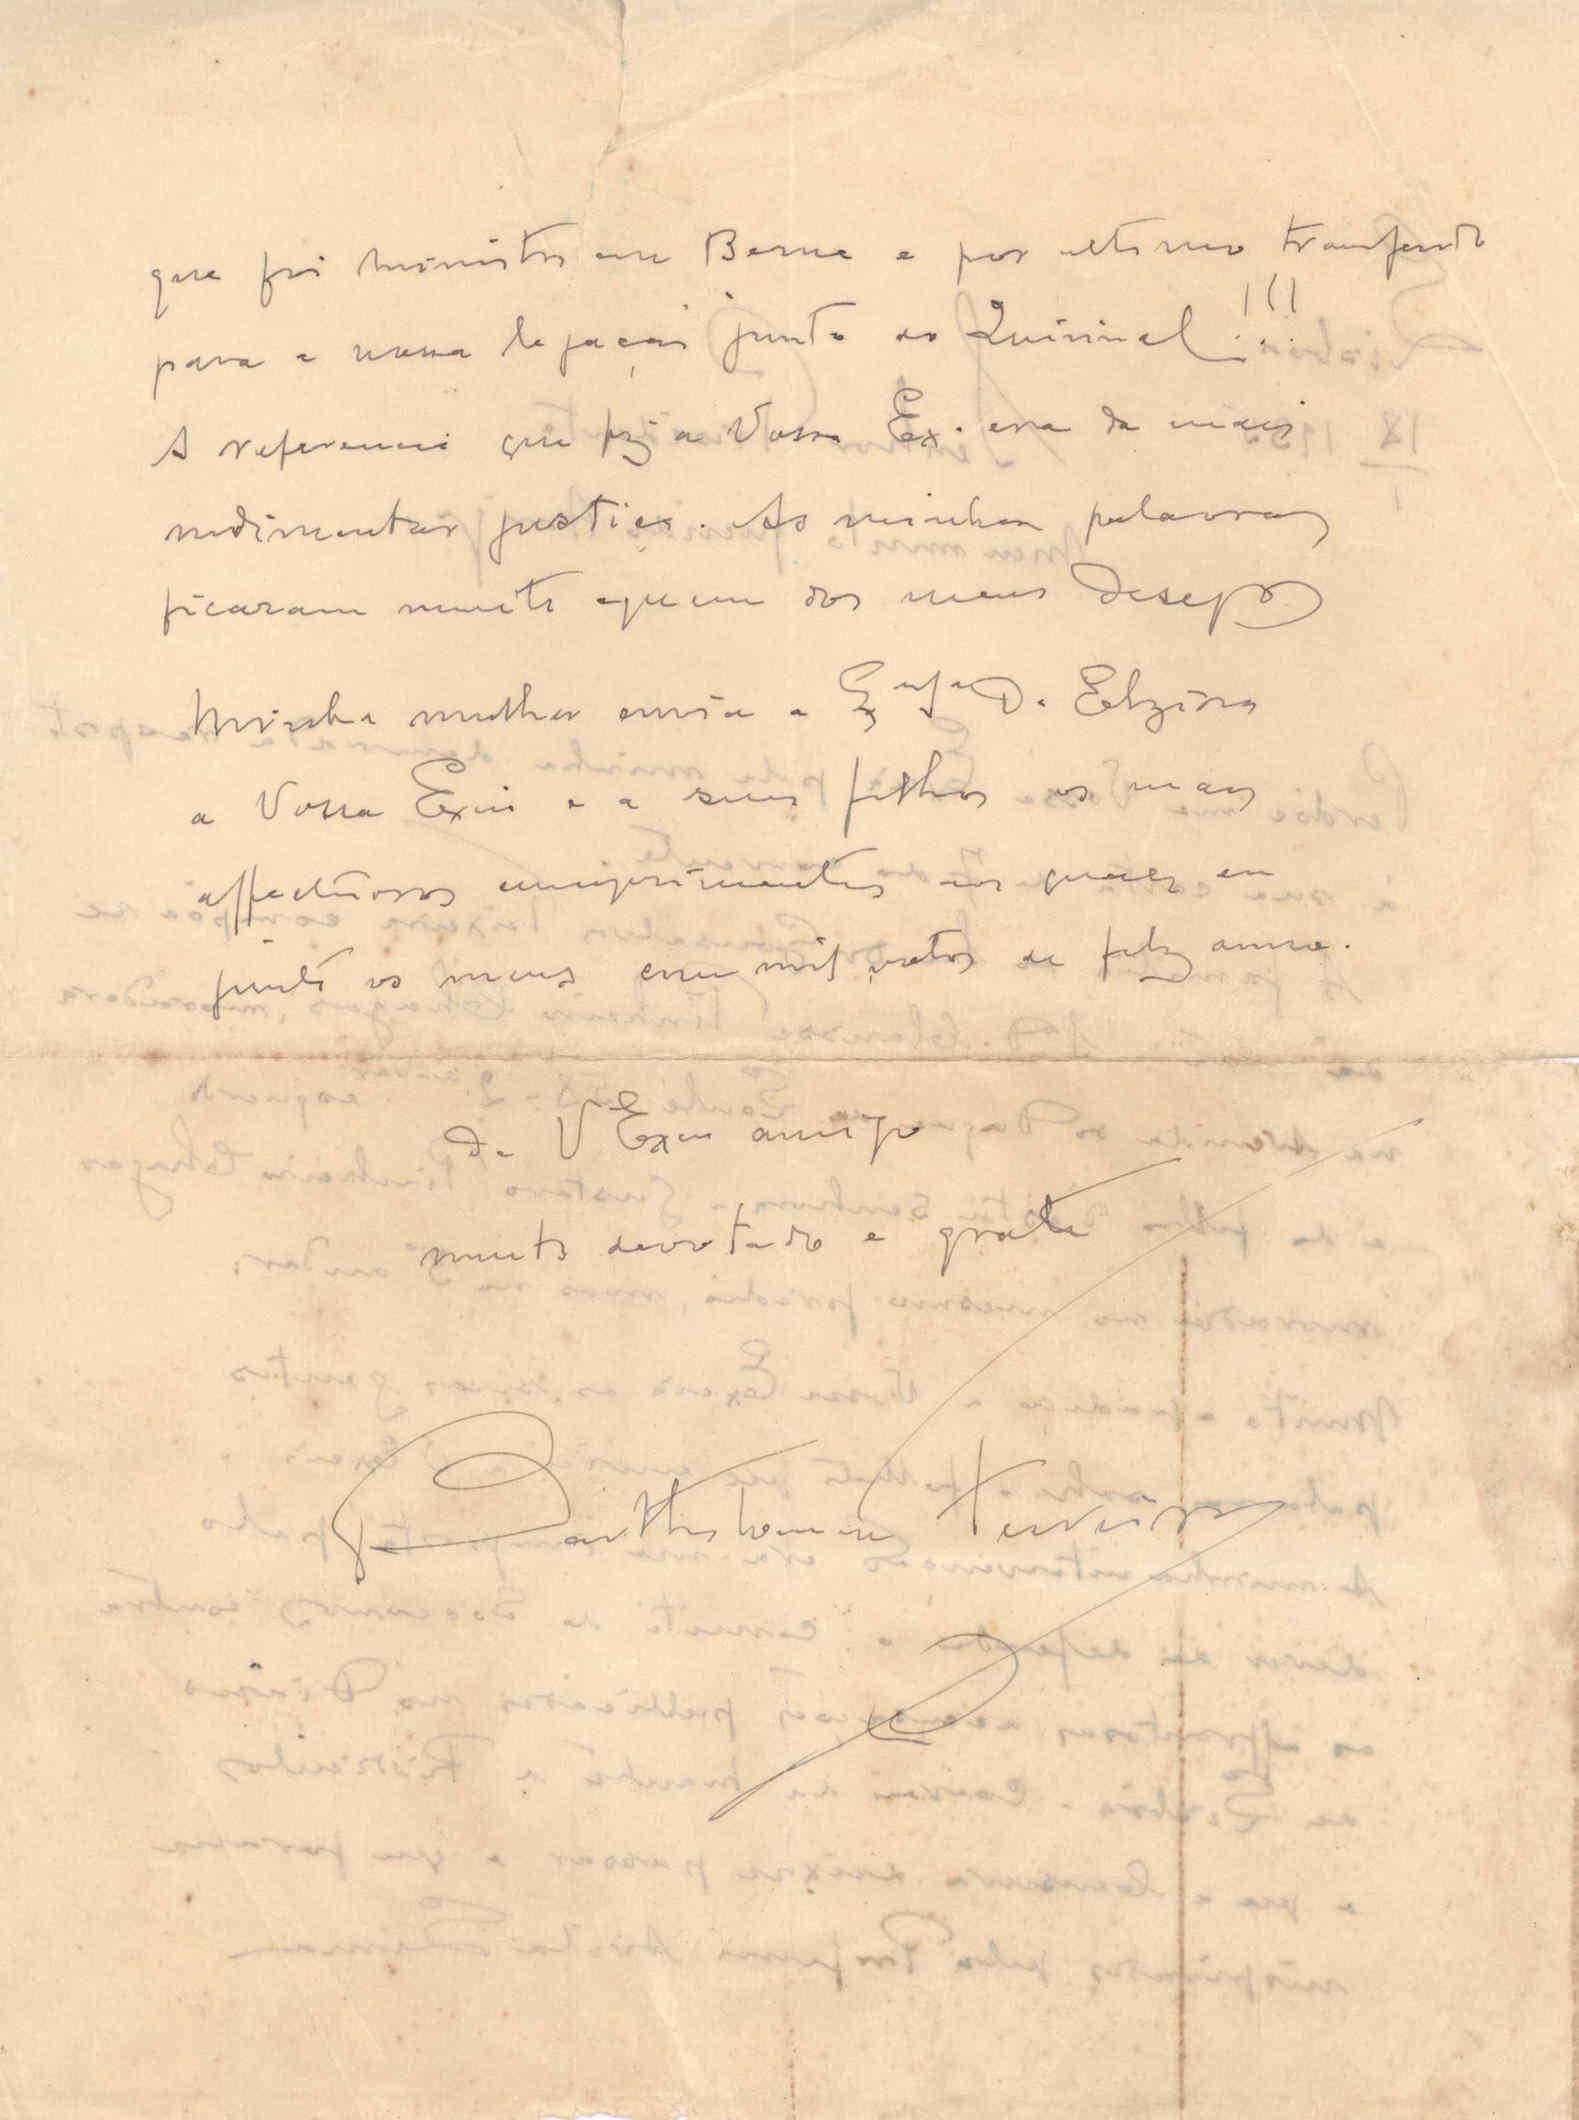 que foi ministro em Berne e por ultimo transferido
para a nossa legação junto ao Quirinal!!!
A referencia que fiz a Vossa Ex. era da mais
rudimentar justiça. As minhas palavras
ficaram muito aquem dos meus desejos
Minha mulher envia a D. Elzira
a Vossa Excia e a seus filhos os mais
affectuosos cumprimentos aos quaes eu
junto os meus com mil votos de feliz anno.
De V Excia amigo
muito devotado e grato
Bartholomeu Ferreira